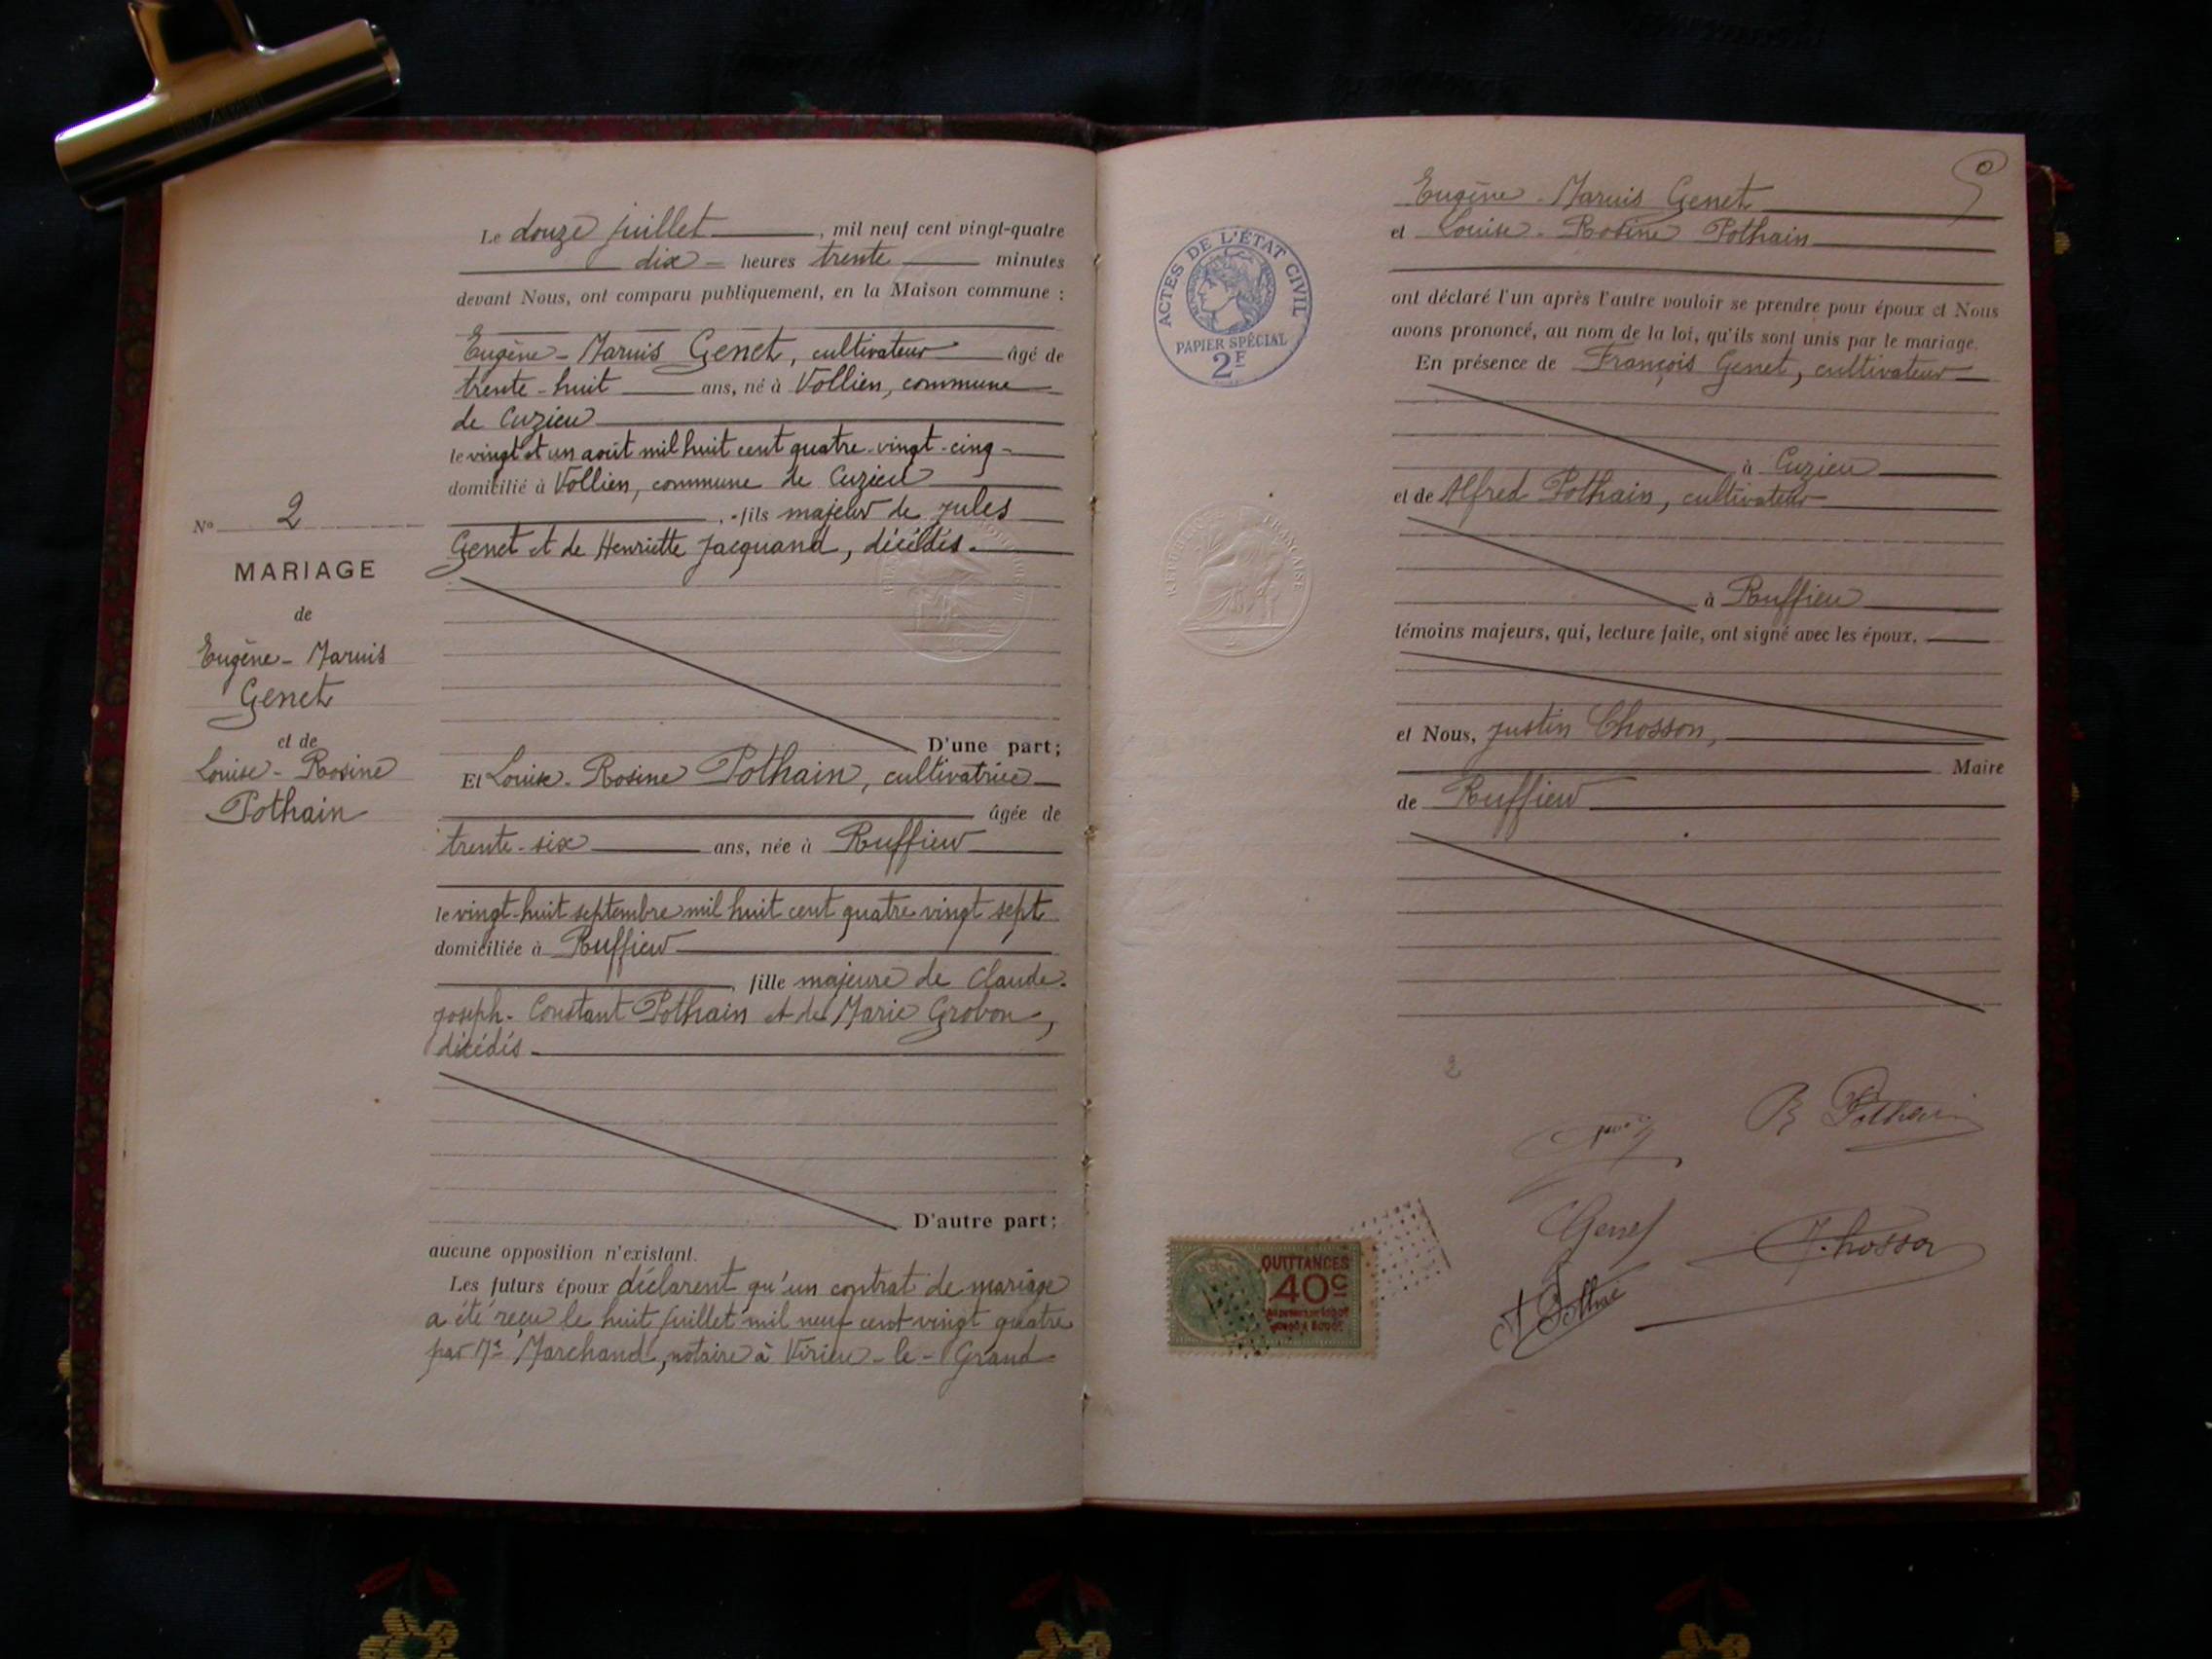 Le douze juillet, mil neuf cent vingt-quatre
dix heures trente minutes
devant Nous, ont comparu publiquement, en la Maison commune :
Eugène-Marius Genet, cultivateur âgé de
trente-huit ans, né à Vollien, commune
de Cuzieu
le vingt et un août mil huit cent quatre-vingt-cinq
domicilié à Vollien, commune de Cuzieu
, fils majeur de Jules
Genet et de Henriette Jacquand, décédés.
D'une part;
Et Louise-Rosine Pothain, cultivatrice
âgée de
trente-six ans, née à Ruffieu
le vingt-huit septembre mil huit cent quatre vingt sept
domiciliée à Ruffieu
fille majeure de Claude-
Joseph-Constant Pothain et de Marie Grobon,
décédés
D'autre part;
aucune opposition n'existant.
Les futurs époux déclarent qu'un contrat de mariage
a été reçu le huit juillet mil neuf cent vingt quatre
par Me Marchand, notaire à Virieu-le-Grand
No 2
MARIAGE
de
Eugène-Marius
Genet
et de
Louise-Rosine
Pothain
Eugène-Marius Genet
et Louise-Rosine Pothain
ont déclaré l'un après l'autre vouloir se prendre pour époux et Nous
avons prononcé, au nom de la loi, qu'ils sont unis par le mariage.
En présence de François Genet, cultivateur
à Cuzieu
et de Alfred Pothain, cultivateur
à Ruffieu
témoins majeurs, qui, lecture faite, ont signé avec les époux,
et Nous, Justin Chosson,
Maire
de Ruffieu
ACTES DE L'ÉTAT CIVIL
PAPIER SPÉCIAL
2F
RÉPUBLIQUE FRANÇAISE
2
R Pothain
Genet
J. Chosson
QUITTANCES
40c